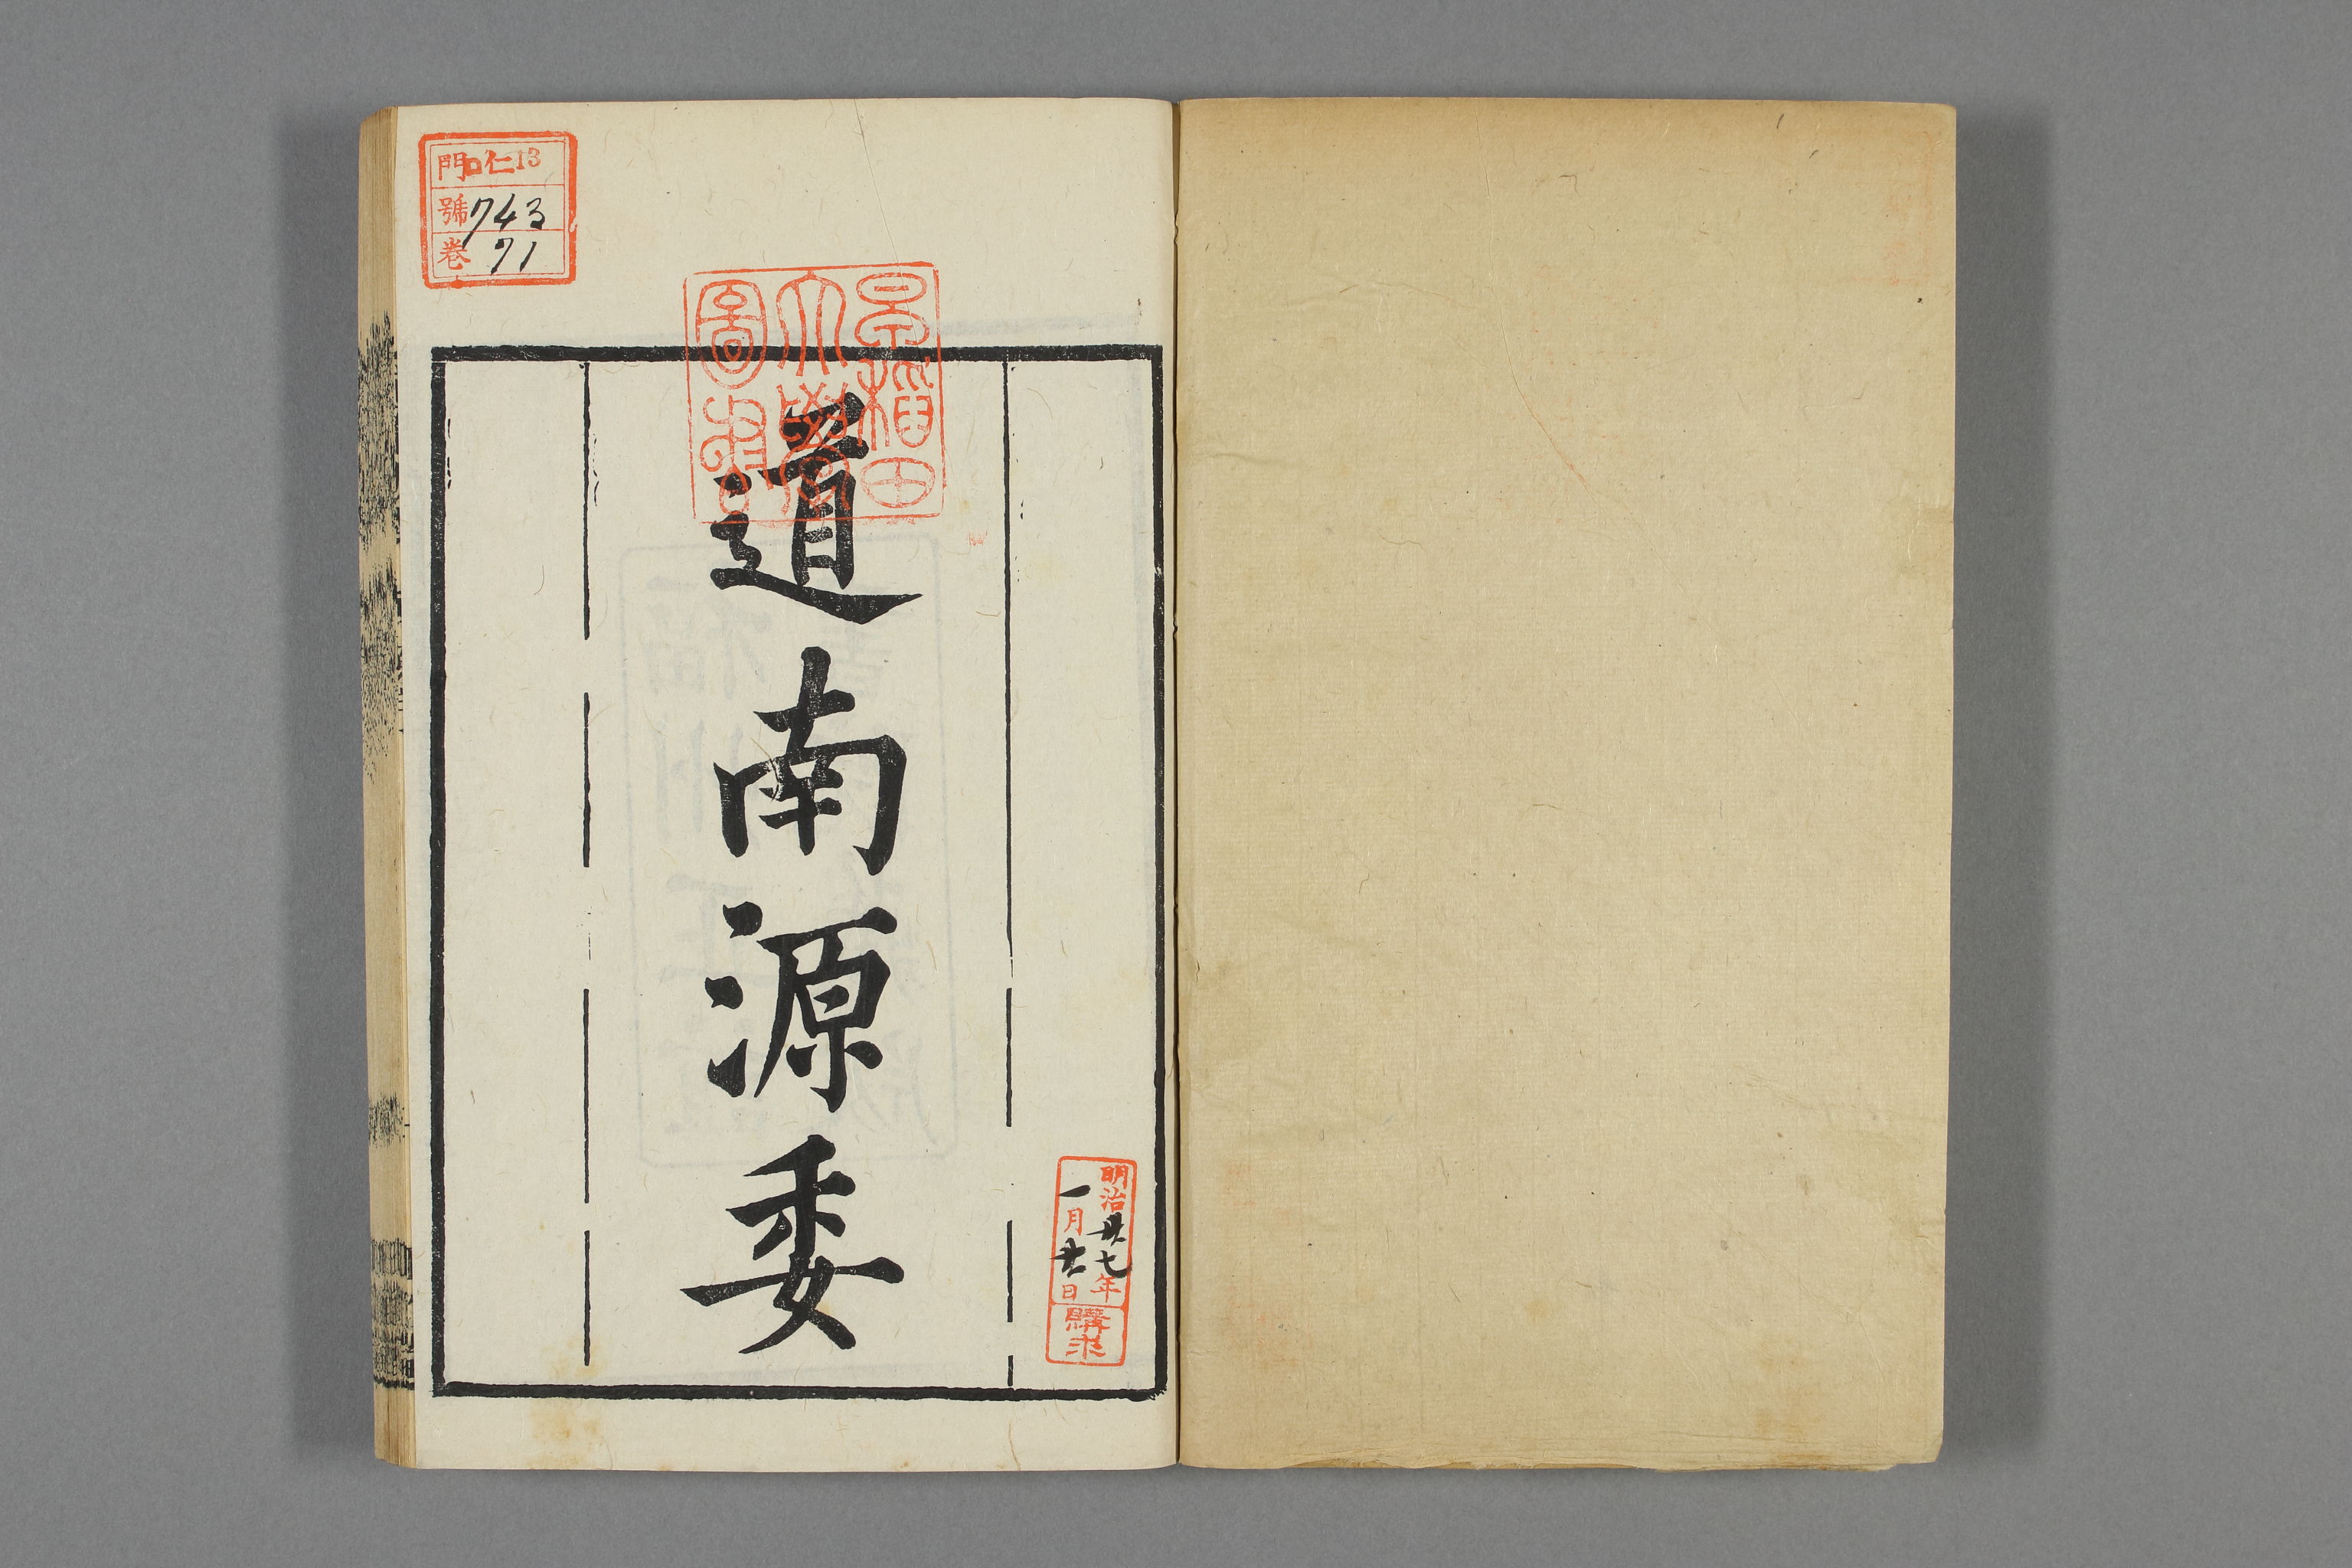 門 ロ仁13
號 743
卷 71
早稲田
大學
圖書
道南源委
明治卅七年
一月廿日
購求